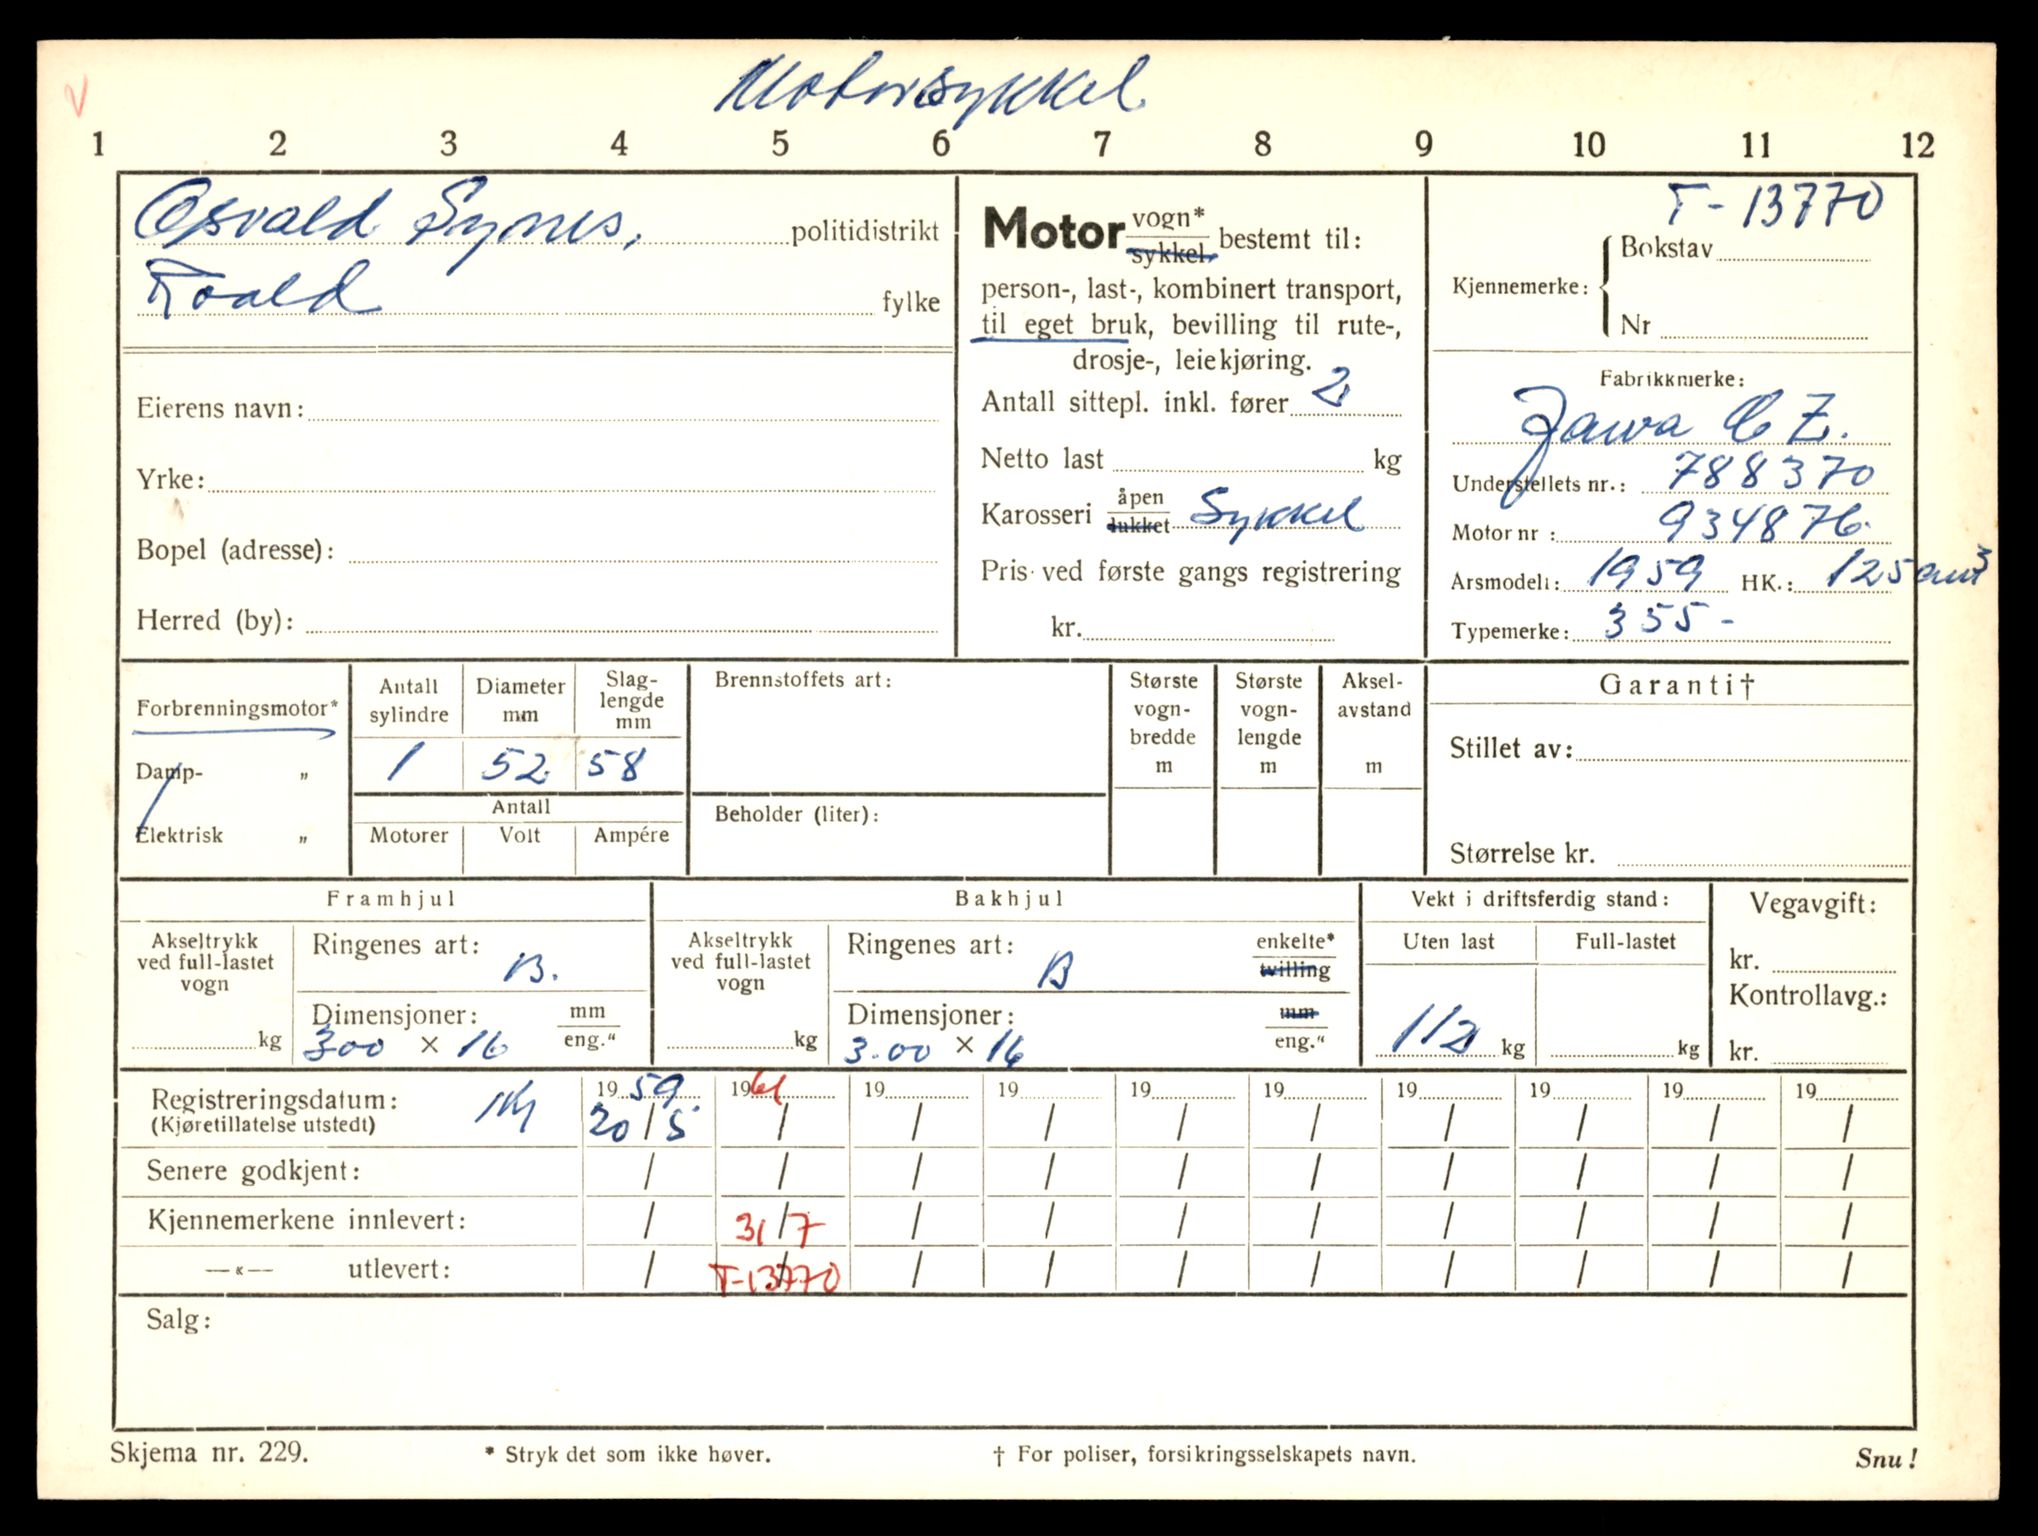 Motorsykkel
1 2 3 4 5 6 7 8 9 10 11 12
Osvald Synes, politidistrikt
Roald fylke
Eierens navn:
Yrke:
Bopel (adresse):
Herred (by):
Motor vogn* sykkel bestemt til:
person-, last-, kombinert transport,
til eget bruk, bevilling til rute-,
drosje-, leiekjøring.
Antall sittepl. inkl. fører 2
Netto last kg
Karosseri åpen lukket Sykkel
Pris ved første gangs registrering
kr.
T-13770
Kjennemerke: Bokstav
Nr
Fabrikkmerke:
Jawa CZ.
Understellets nr.: 788370
Motor nr: 934876
Årsmodell: 1959 HK.: 125 cm³
Typemerke: 355-
Forbrenningsmotor*
Damp- "
Elektrisk "
Antall sylindre Diameter mm Slag-lengde mm
1 52 58
Antall
Motorer Volt Ampére
Brennstoffets art:
Beholder (liter):
Største vogn-bredde m
Største vogn-lengde m
Aksel-avstand m
Garanti†
Stillet av:
Størrelse kr.
Framhjul
Akseltrykk ved full-lastet vogn
kg
Ringenes art: B.
Dimensjoner: mm eng."
300 × 16
Bakhjul
Akseltrykk ved full-lastet vogn
kg
Ringenes art: B enkelte* tvilling
Dimensjoner: mm eng."
3.00 × 16
Vekt i driftsferdig stand:
Uten last Full-lastet
112 kg kg
Vegavgift:
kr.
Kontrollavg.:
kr.
Registreringsdatum: 1959 1961 19 19 19 19 19 19 19 19
(Kjøretillatelse utstedt) 20/5 / / / / / / / / /
Senere godkjent: / / / / / / / / / /
Kjennemerkene innlevert: / 31/7 / / / / / / / /
—«— utlevert: / T-13770 / / / / / / / /
Salg:
Skjema nr. 229. * Stryk det som ikke høver. † For poliser, forsikringsselskapets navn. Snu!